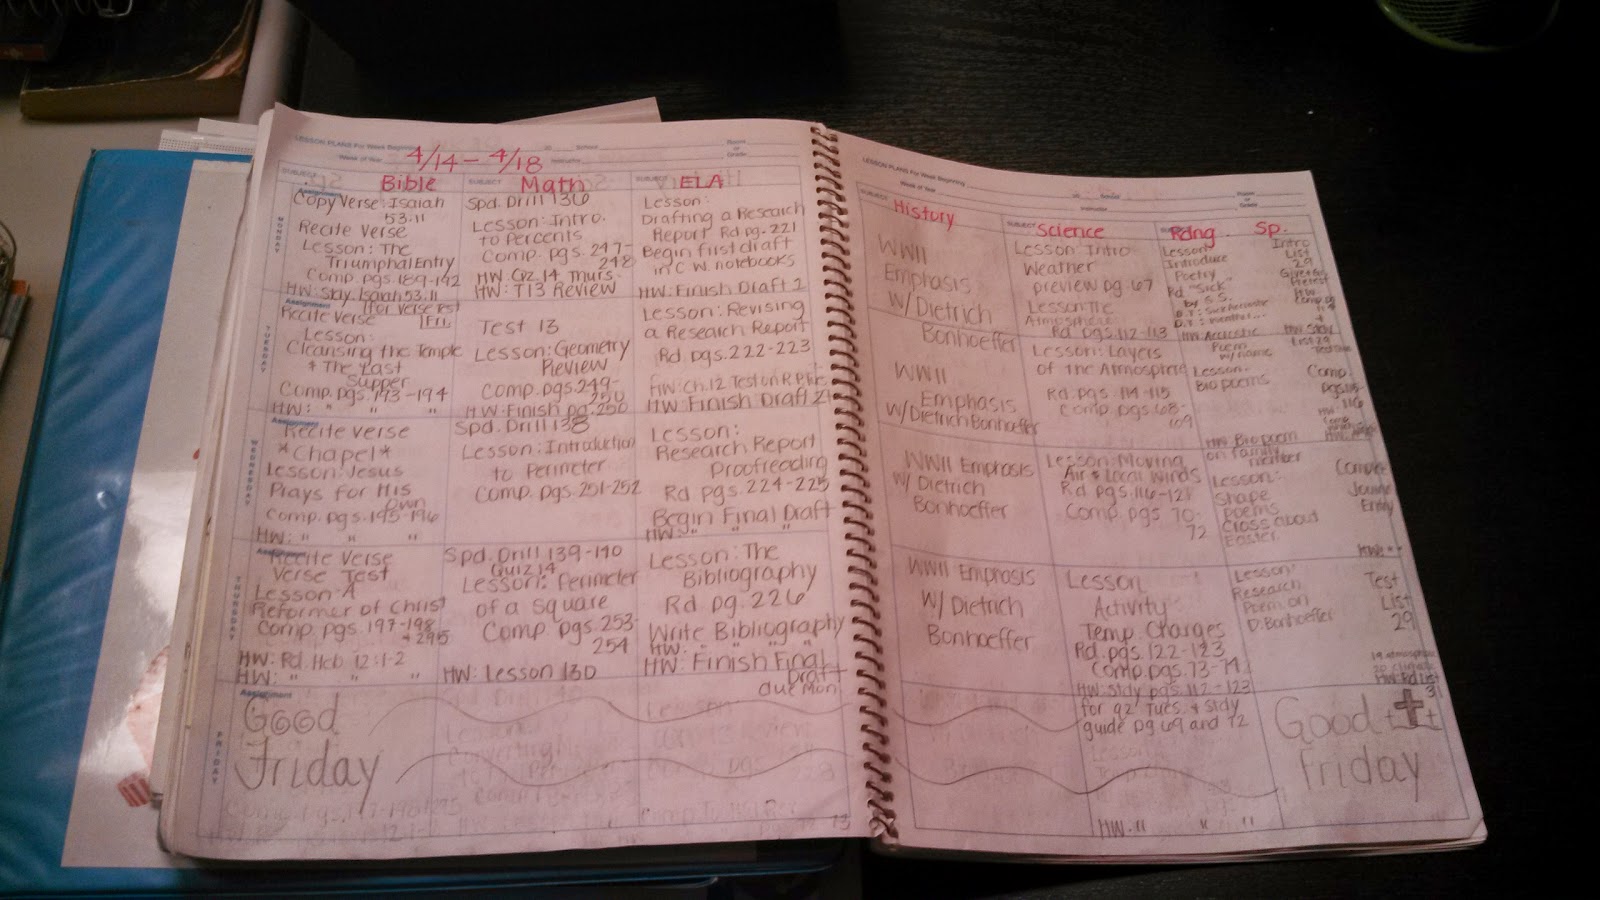 LESSON PLANS For Week Beginning
School
Room
or
Grade
Week of Year
4/14 - 4/18
Instructor
SUBJECT
Bible
SUBJECT
Math
SUBJECT
ELA
MONDAY
Assignment
Copy Verse: Isaiah
53:11
Recite Verse
Lesson: The
Triumphal Entry
Comp. pgs. 189-192
HW: Stdy. Isaiah 53:11
Spd. Drill 136
Lesson: Intro.
to Percents
Comp. pgs. 247-
248
HW: Qz. 14 Thurs.
HW: T13 Review
Lesson:
Drafting a Research
Report Rd pg. 221
Begin first draft
in C.W. notebooks
HW: Finish Draft 1
TUESDAY
Assignment
Recite Verse
Lesson:
Cleansing the Temple
+ The Last
Supper
Comp. pgs. 193-194
HW: " " "
Test 13
Lesson: Geometry
Review
Comp. pgs. 249-
250
HW: Finish pg. 250
Lesson: Revising
a Research Report
Rd. pgs. 222-223
HW: Finish Draft 2
WEDNESDAY
Assignment
Recite Verse
*Chapel*
Lesson: Jesus
Prays for His
Own
Comp. pgs. 195-196
HW: " " "
Spd. Drill 138
Lesson: Introduction
to Perimeter
Comp. pgs. 251-252
Lesson:
Research Report
Proofreading
Rd pgs. 224-225
Begin Final Draft
HW: " " "
THURSDAY
Assignment
Recite Verse
Verse Test
Lesson: A
Reformer of Christ
Comp. pgs. 197-198
+ 295
HW: Rd. Heb 12:1-2
HW: " " "
Spd. Drill 139-140
Quiz 14
Lesson: Perimeter
of a Square
Comp. pgs. 253-
254
HW: Lesson 130
Lesson: The
Bibliography
Rd pg. 226
Write Bibliography
HW: " " "
HW: Finish Final
Draft
due Mon.
FRIDAY
Assignment
Good
Friday
LESSON PLANS For Week Beginning
School
Room
or
Grade
Week of Year
Instructor
SUBJECT
History
SUBJECT
Science
Rdng.
Sp.
WWII
Emphasis
W/ Dietrich
Bonhoeffer
Lesson Intro
Weather
preview pg. 67
Lesson The
Atmosphere
Rd pgs. 112-113
Lesson
Introduce
Poetry
Rd. "Sick"
by S.S.
Intro
List
29
WWII
Emphasis
W/ Dietrich Bonhoeffer
Lesson: Layers
of the Atmosphere
Rd. pgs. 114-115
Comp. pgs. 68-
69
Poem
w/ name
Lesson-
Bio poems
HW Bio poem
on family
member
Comp.
116
WWII Emphasis
W/ Dietrich
Bonhoeffer
Lesson: Moving
Air + Local Winds
Rd pgs. 116-121
Comp. pgs 70-
72
Lesson:
Shape
poems
Cross about
Easter
WWII Emphasis
W/ Dietrich
Bonhoeffer
Lesson
Activity
Temp. Charges
Rd. pgs. 122-123
Comp. pgs. 73-74
HW: Stdy pgs. 112-123
for qz Tues. + stdy
guide pg 69 and 72
Lesson:
Research
Poem on
D. Bonhoeffer
Test
List
29
HW: Rd List
31
Good
Friday
HW: " " "